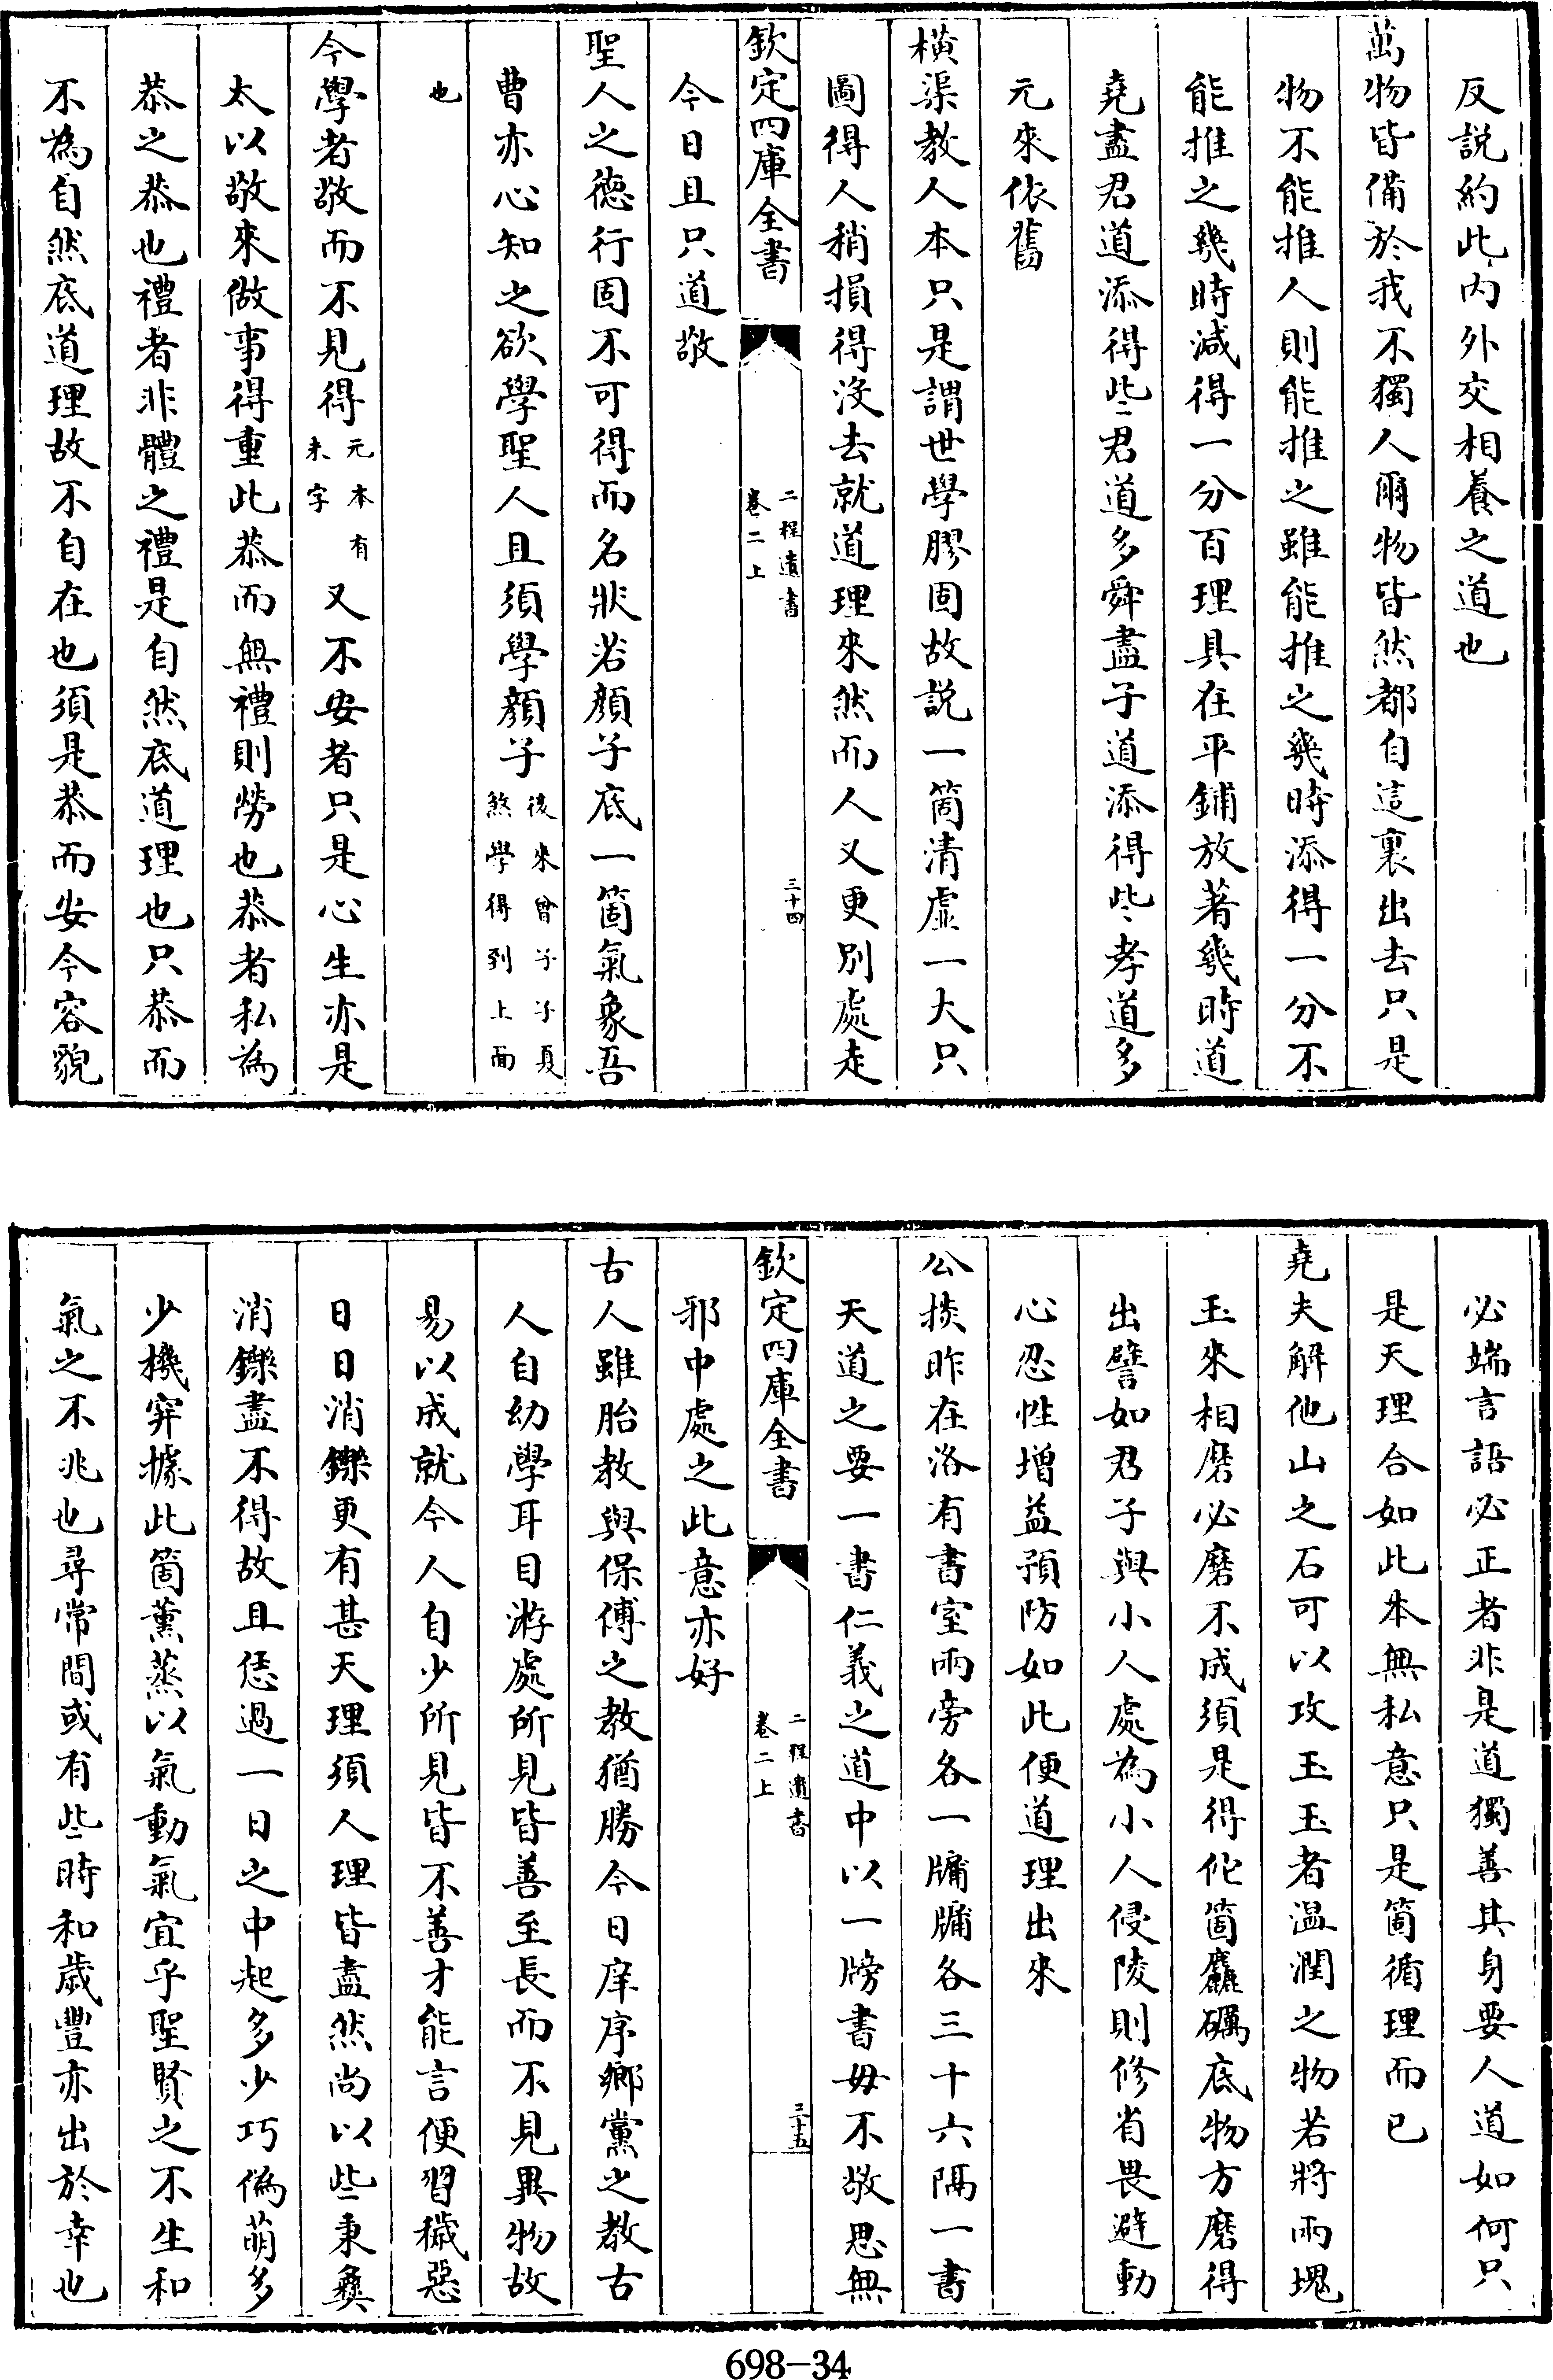 反説約此内外交相養之道也
萬物皆備於我不獨人爾物皆然都自這裏出去只是
物不能推人則能推之雖能推之㡬時添得一分不
能推之㡬時減得一分百理具在平鋪放著㡬時道
堯盡君道添得些君道多舜盡子道添得些孝道多
元來依舊
橫渠教人本只是謂世學膠固故説一箇清虚一大只
圖得人稍損得没去就道理來然而人又更別處走
欽定四庫全書
二程遺書
卷二上
三十四
今日且只道敬
聖人之徳行固不可得而名狀若顔子底一箇氣象吾
曹亦心知之欲學聖人且須學顔子後來曾子子夏
煞學得到上面
也
今學者敬而不見得元本有
未字
又不安者只是心生亦是
太以敬來做事得重此恭而無禮則勞也恭者私為
恭之恭也禮者非體之禮是自然底道理也只恭而
不為自然底道理故不自在也須是恭而安今容貌
必端言語必正者非是道獨善其身要人道如何只
是天理合如此本無私意只是箇循理而已
堯夫解他山之石可以攻玉玉者温潤之物若將兩塊
玉來相磨必磨不成須是得佗箇麤礪底物方磨得
出譬如君子與小人處為小人侵陵則修省畏避動
心忍性增益預防如此便道理出來
公掞昨在洛有書室兩旁各一牖牖各三十六隔一書
天道之要一書仁義之道中以一牓書毋不敬思無
欽定四庫全書
二程遺書
卷二上
三十五
邪中處之此意亦好
古人雖胎教與保傅之教猶勝今日庠序鄉黨之教古
人自幼學耳目游處所見皆善至長而不見異物故
易以成就今人自少所見皆不善才能言便習穢惡
日日消鑠更有甚天理須人理皆盡然尚以些秉彝
消鑠盡不得故且恁過一日之中起多少巧偽萌多
少機穽據此箇薰蒸以氣動氣宜乎聖賢之不生和
氣之不兆也尋常間或有些時和歲豐亦出於幸也
698-34